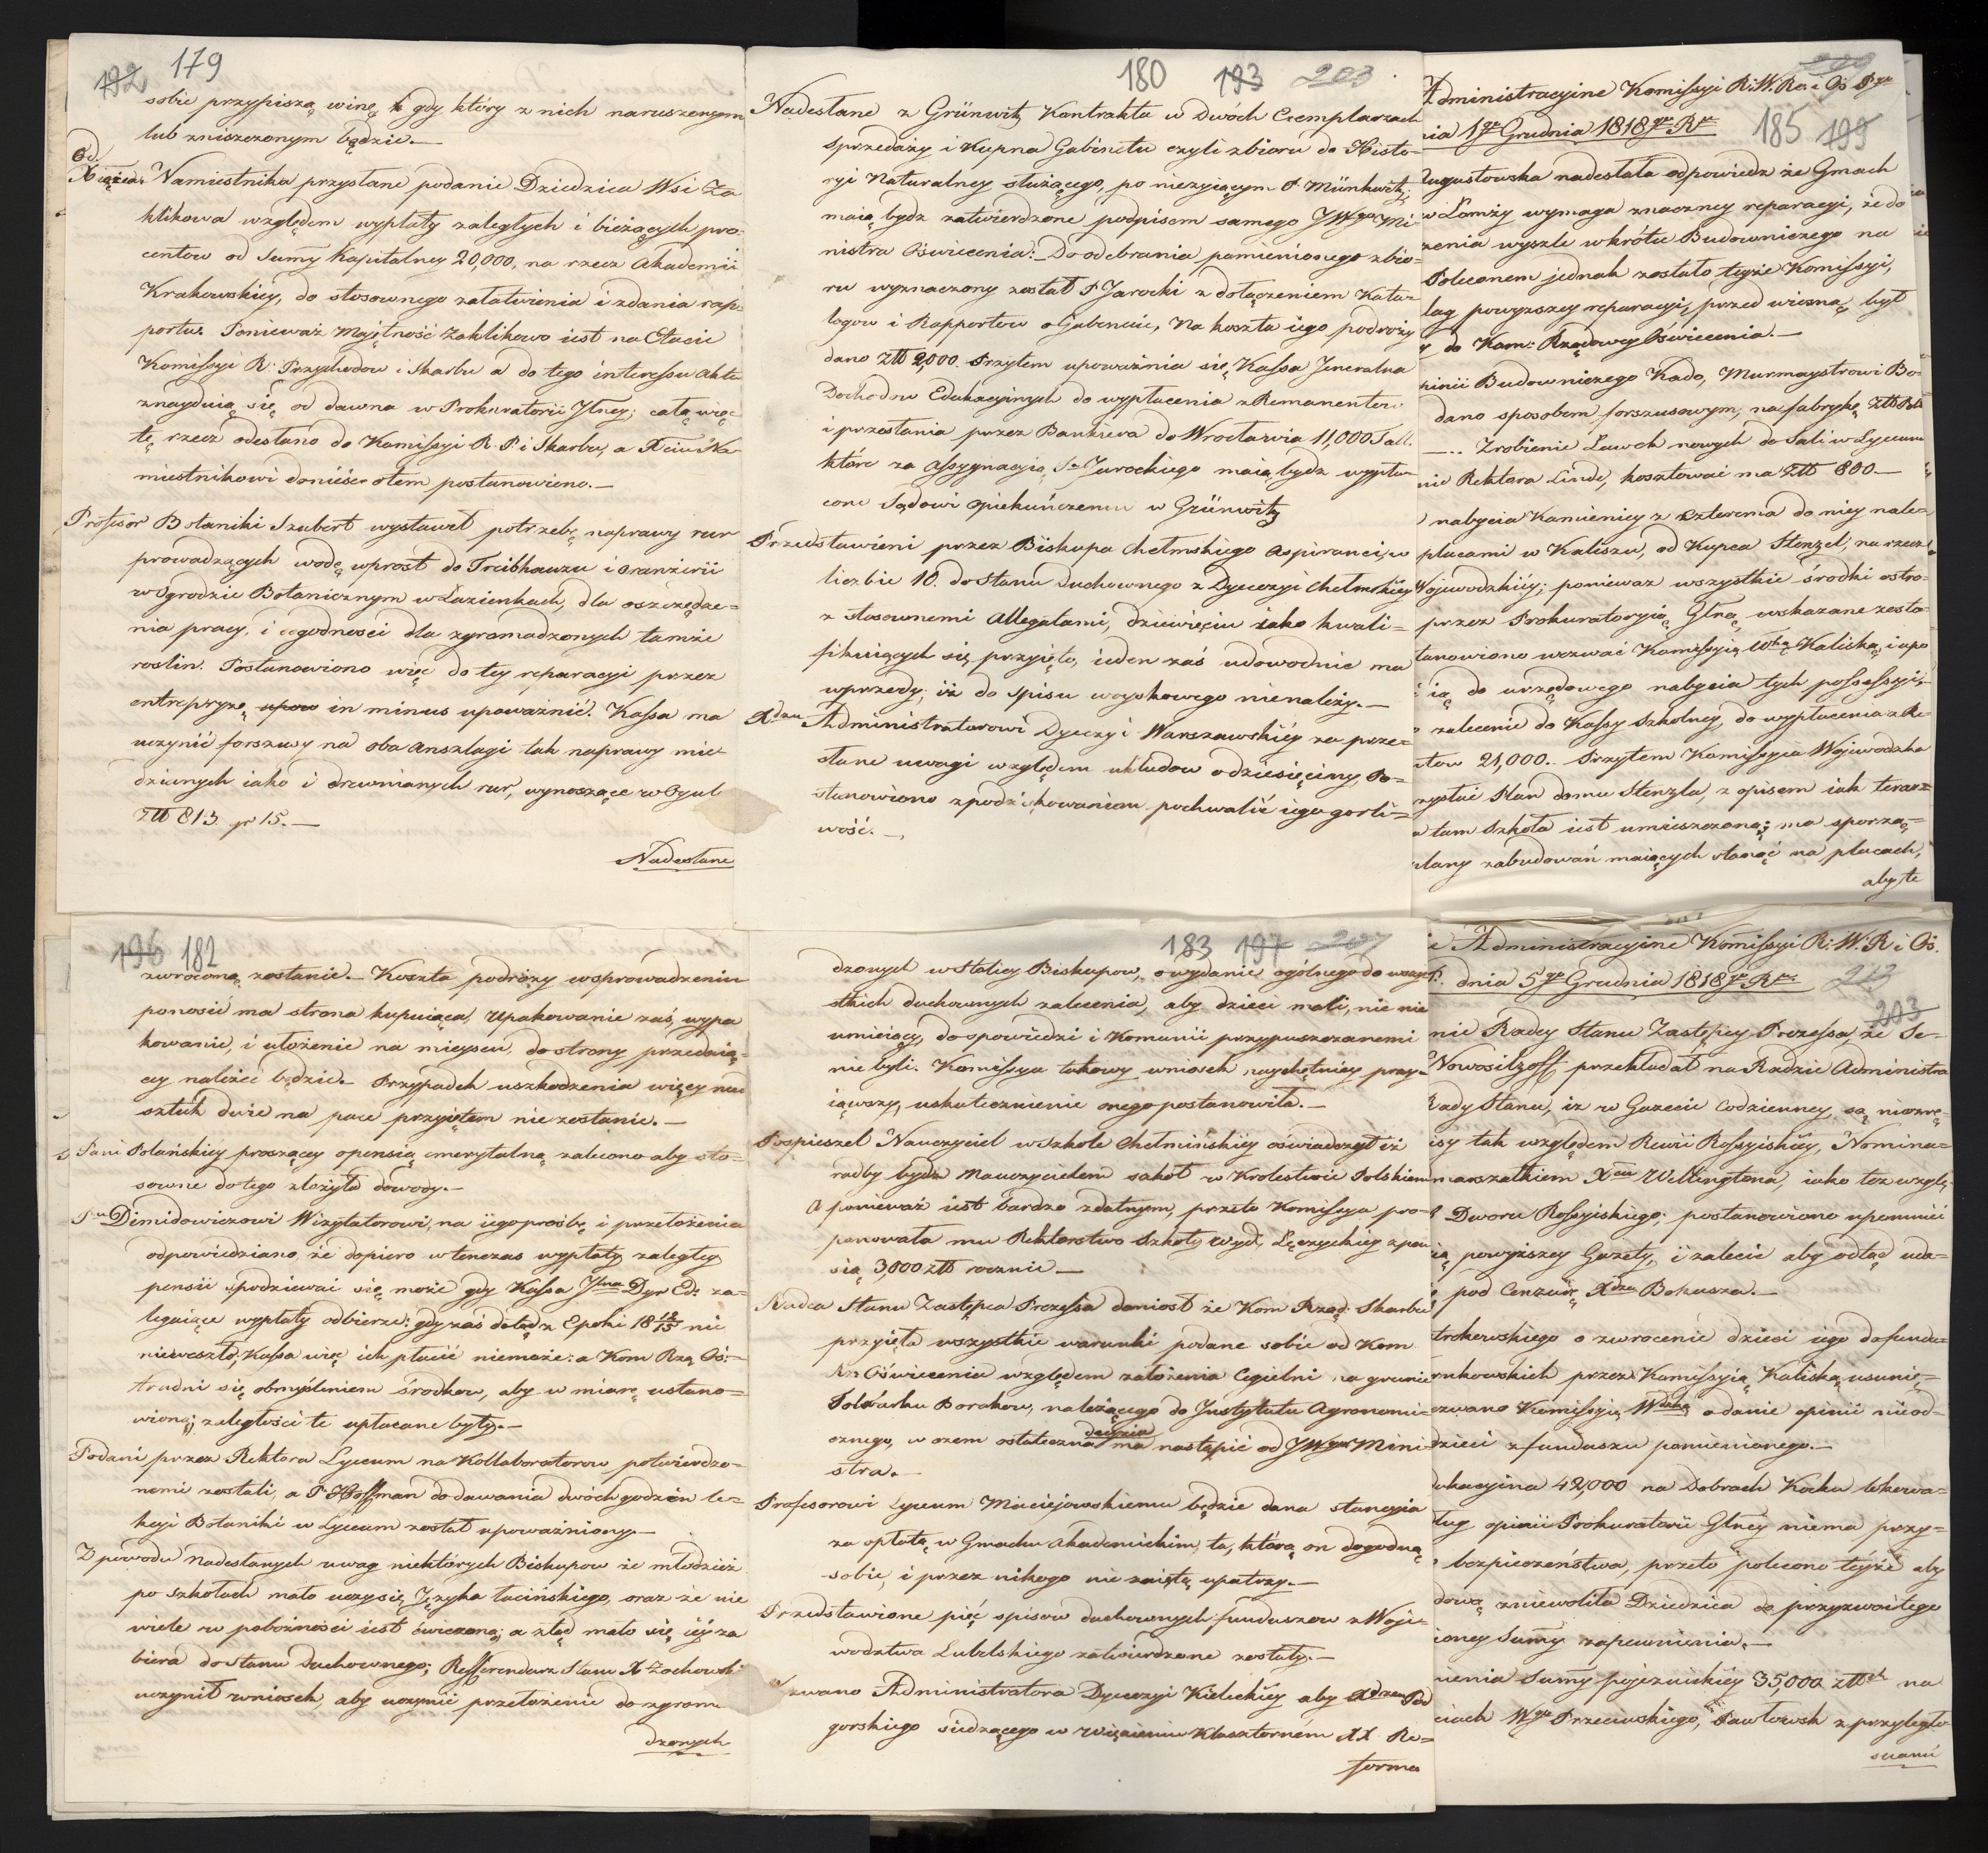 192 179
sobie przypiszą winę, gdy który z nich naruszonym
lub zniszczonym będzie.—
Od
Xięcia Namiestnika przysłane podanie Dziedzica Wsi Za
klikowa względem wypłaty zaległych i bieżących pro-
centow od Summy Kapitalney 20,000, na rzecz Akademii
Krakowskiey, do stosownego załatwienia i zdania rap-
portu. Ponieważ Majętność Zaklikowo iest na Etacie
Komissyi R: Przychodow i Skarbu a do tego interessu Akta
znayduią się od dawna w Prokuratorii Jlney; całą więc
tę rzecz odesłano do Komissyi R. P. i Skarbu, a Xciu Na-
miestnikowi donieść o tem postanowiono.—
Professor Botaniki Szubert wystawił potrzebę naprawy rur
prowadzących wodę wprost do Treibhauzu i Oranżerii
w Ogrodzie Botanicznym w Łazienkach, dla oszczędze-
nia pracy, i dogodności dla zgromadzonych tamże
roslin. Postanowiono więc do tey reparacyi przez
entrepryzę upow in minus upoważnić. Kassa ma
uczynić forszusy na oba anszlagi tak naprawy mie-
dzianych iako i drewnianych rur, wynoszące w Ogule
Złł 813 gr 15.—
Nadesłane
180 193 203
Nadesłane z Grünwitz Kontrakta w Dwóch Exemplarzach
sprzedaży i Kupna Gabinetu czyli zbioru do Histo-
ryi Naturalney służącego, po nieżyiącym P. Münkwitz;
maią bydz zatwierdzone podpisem samego JWgo Mi-
nistra Oświecenia: Do odebrania pomienionego zbio-
ru wyznaczony został P Jarocki z dołączeniem Kata-
logow i Rapportow o Gabinecie, Na koszta iego podróży
dano Złł 2,000. Przytem upoważnia się Kassa Jeneralna
Dochodow Edukacyjnych do wypłacenia z Remanentow
i przesłania przez Bankiera do Wrocławia 11,000 Tall.
które za Assygnacyią Jarockiego maią bydz wypła-
cone Sądowi Opiekuńczemu w Grünwitz
Przedstawieni przez Biskupa Chełmskiego Aspiranci, w
liczbie 10. do Stanu Duchownego z Dyecezyi Chełmskiey
z stosownemi Allegatami, dziewięciu iako kwali-
fikuiących się przyięto, ieden zaś udowodnić ma
wprzedy, iż do spisu woyskowego nienależy.—
Xdzu Administratorowi Dyecezyi Warszawskiey za prze-
słane uwagi względem układow o dziesięciny, Po-
stanowiono z podziękowaniem pochwalić iego gorli-
wość.—
Administracyine Komissyi R: W: Re: i Oś P
nia 1go Grudnia 1818go Rku
185 199
ugustowska nadesłała odpowiedz że Gmach
w Łomży wymaga znaczney reparacyi, że do
zenia wyszle wkrótce Budowniczego na
Poleconem jednak zostało teyże Komissyi,
lag powyższey reparacyi, przed wiosną, był
do Kom: Rządowey Oświecenia.—
pinii Budowniczego Kado, Murmaystrowi Bo-
dano sposobem forszusowym, na fabrykę Złł Pol
Zrobienie Ławek nowych do Sali w Lyceum
nie Rektora Linde, kosztować ma Złł 800—
nabycia Kamienicy z czterema do niey nale-
placami w Kaliszu, od Kupca Stenzel, na rzecz
Wojewodzkiéy; ponieważ wszystkie środki ostro-
przez Prokuratoryią Glną wskazane zosta-
tanowiono wezwać Komissyią Wdzką Kaliską, i upo
ią do urzędowego nabycia tych possessyi,
zalecenie do Kassy Szkolney, do wypłacenia z Re-
ntow 21,000. Przytem Kommissyia Wojewodzka
zysłać Plan domu Stenzla, z opisem iak teraz
a tam Szkoła iest umieszczona; ma sporzą-
plany zabudowań maiących stanąć na placach,
aby te
196 182
zwróconą zostanie.— Koszta podróży w sprowadzeniu
ponosić ma strona kupuiąca, Upakowanie zaś, wypa
kowanie, i ułożenie na mieyscu, do strony przedaią-
cey należeć będzie.— Przypadek uszkodzenia więcey nad
sztuk dwie na pace przyiętem nie zostanie.—
Pani Polańskiey proszącey o pensią emerytalną zalecono aby sto-
sowne do tego złożyła dowody.—
Pu Dimidowiczowi Wizytatorowi, na iego prośbę i przełożenia
odpowiedziano, że dopiero wtenczas wypłaty zaległey
pensii spodziewać się może gdy Kassa Jlna Dyr Ed: za-
legaiące wypłaty odbierze: gdy zaś dotąd z Epoki 18 12/15 nic
nieweszło, Kassa więc ich płacić niemoże: a Kom Rzą Oś:
trudni się obmyśleniem środkow, aby w miarę ustano-
wioną, zaległości te upłacane były.—
Podani przez Rektora Lyceum na Kollaboratorow potwierdzo-
nemi zostali, a P. Hoffman do dawania dwóch godzin le-
kcyi Botaniki w Lyceum został upoważniony.—
Z powodu nadesłanych uwag niektórych Biskupow że młodzież
po szkołach mało uczy się Języka łacińskiego, oraz że nie
wiele w pobożności iest ćwiczoną; a ztąd mało się iéy za
biera do stanu duchownego; Refferendarz Stanu X Zochowski
uczynił wniosek, aby uczynić przełożenie do zgroma
dzonych
183 197 207
dzonych w stolicy Biskupow, o wydanie ogólnego do wszys-
stkich duchownych zalecenia, aby dzieci mali, nic nie
umieiący, do spowiedzi i Komunii przypuszczanemi
nie byli. Komissya takowy wniosek naychętniey przy-
iąwszy, uskutecznienie onego postanowiła.—
Pospieszel Nauczyciel w Szkole Chełmińskiéy oświadczył iż
radby bydź Nauczycielem szkół w Krolestwie Polskiem
A ponieważ iest bardzo zdatnym, przeto Komissya pro-
ponowała mu Rektorstwo Szkoły Wydł. Łęczyckiey z pen
sią 3,000 złł rocznie —
Radca Stanu Zastępca Prezessa doniosł że Kom Rząd: Skarbu
przyięła wszystkie warunki podane sobie od Kom
Rzą Oświecenia względem założenia Cegielni na gruncie
Folwarku Burakow, należącego do Instytutu Agronomi-
decyzia
cznego, w czem ostateczna ma nastąpić od JWgo Mini-
stra.—
Professorowi Lyceum Maciejowskiemu będzie dana stancyia
za opłatą w Gmachu Akademickim, ta, którą on dogodną
sobie, i przez nikogo nie zaiętą upatrzy.—
Przedstawione pięć spisow duchownych funduszow z Woje-
wodztwa Lubelskiego zatwierdzone zostały.—
zwano Administratora Dyecezyi Kieleckiéy aby Xdza Pod
gorskiego siedzącego w więzieniu Klasztorném XX Re-
forma
Administracyine Komissyi R: W: R i Oś.
dnia 5go Grudnia 1818go Rku 213
203
nie Radcy Stanu Zastępcy Prezessa, że Se-
Nowosiltzoff przekładał na Radzie Administra
Rady Stanu, iż w Gazecie Codzienney, są niezrę-
isy tak względem Rewii Rossyiskiéy, Nomina-
marszałkiem Xcia Wellingtona, iako też wzglę
Dworu Rossyiskiego; postanowiono upomnieć
ią powyższey Gazety, i zalecić aby odtąd uda-
pod Cenzurę Xdza Bohusza.—
trokowskiego o zwrocenie dzieci iego do fundu-
rnkowskich przez Komissyią Kaliską usunię-
ezwano Komissyią Wdzką o danie opinii nieod-
dzieci z funduszu pomienionego.—
ukacyina 42,000 na Dobrach Kocku lokowa-
ług opinii Prokuratorii Glnéy niema przy-
bezpieczeństwa, przeto polecono téyże aby
dową zniewoliła Dziedzica do przyzwoitego
ioney Summy zapewnienia.—
nienia Summy pojezuickiey 35,000 złłch na
ciach Wgo Przeciwskiego, Pawłowsk z przyległo
sciami